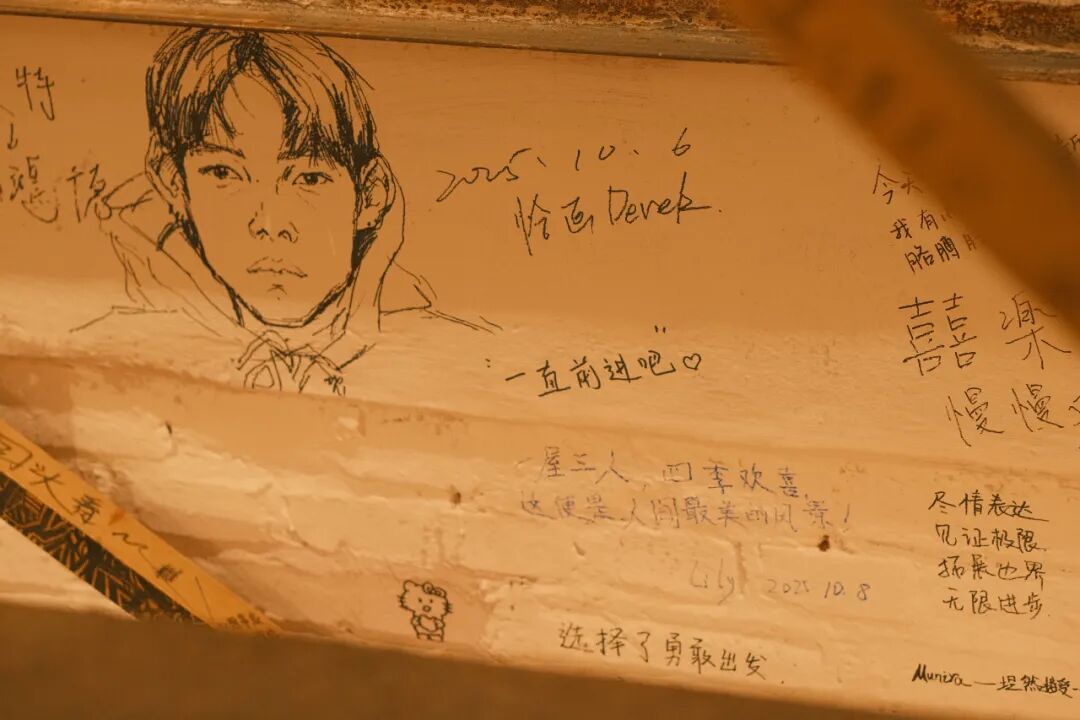 特
2025、10、6
恰画Derek.
一直前进吧♡
今天
我有
胳膊
喜乐
慢慢
一屋三人,四季欢喜,
这便是人间最美的风景!
Lily 2025.10.8
尽情表达
见证极限
拓展世界
无限进步.
选择了勇敢出发.
Munira — 坦然接受